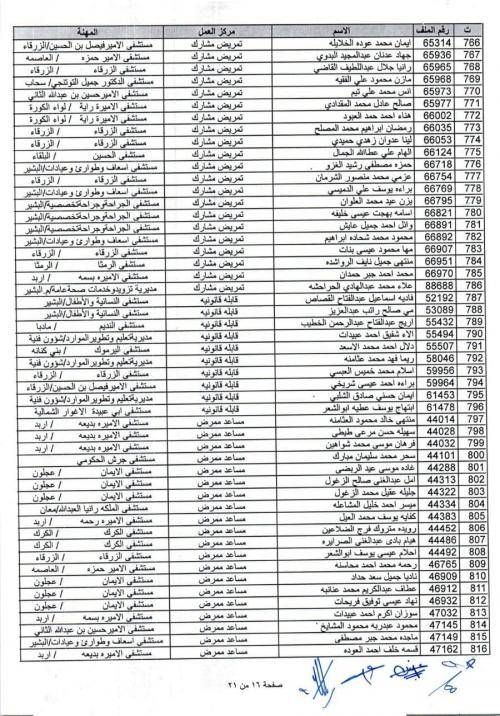 ت رقم الملف الاسم مركز العمل المهنة
766 65314 ايمان محمد عوده الخلايله تمريض مشارك مستشفى الاميرفيصل بن الحسين/الزرقاء
767 65936 جهاد عدنان عبدالمجيد البدوي تمريض مشارك مستشفى الامير حمزه / العاصمه
768 65965 رانيا جلال عبداللطيف القاضي تمريض مشارك مستشفى الزرقاء / الزرقاء
769 65968 مازن محمود علي الفقيه تمريض مشارك مستشفى الدكتور جميل التوتنجي/ سحاب
770 65973 انس محمد علي تيم تمريض مشارك مستشفى الاميرحسين بن عبدالله الثاني
771 65977 صالح عادل محمد المقدادي تمريض مشارك مستشفى الاميرة راية / لواء الكورة
772 66002 هناء احمد حمد العبود تمريض مشارك مستشفى الاميرة راية / لواء الكورة
773 66035 رمضان ابراهيم محمد المصلح تمريض مشارك مستشفى الزرقاء / الزرقاء
774 66053 لينا عدوان زهدي حميدي تمريض مشارك مستشفى الزرقاء / الزرقاء
775 66124 الهام علي عطاالله الجمال تمريض مشارك مستشفى الحسين / البلقاء
776 66718 حمزه مصطفى رشيد الغزو تمريض مشارك مستشفى اسعاف وطوارئ وعيادات/البشير
777 66754 عزمي محمد منصور الشرمان تمريض مشارك مستشفى الزرقاء / الزرقاء
778 66769 براءه يوسف علي الدميسي تمريض مشارك مستشفى اسعاف وطوارئ وعيادات/البشير
779 66795 يزن عيد محمد العلوان تمريض مشارك مستشفى الجراحةوجراحةتخصصية/البشير
780 66821 اسامه بهجت عيسى خليفه تمريض مشارك مستشفى الجراحةوجراحةتخصصية/البشير
781 66891 وائل احمد جميل عايش تمريض مشارك مستشفى الجراحةوجراحةتخصصية/البشير
782 66892 محمود محمد شحاده ابراهيم تمريض مشارك مستشفى اسعاف وطوارئ وعيادات/البشير
783 66907 مها محمود عيسى بنات تمريض مشارك مستشفى الزرقاء / الزرقاء
784 66951 منتهى جميل نايف الرواشده تمريض مشارك مستشفى الرمثا / الرمثا
785 66970 محمد احمد جبر حمدان تمريض مشارك مستشفى الاميره بسمه / اربد
786 88688 علاء محمد عبدالهادي الحراحشه تمريض مشارك مديرية تزويدوخدمات صحةعامة/م البشير
787 52192 فاديه اسماعيل عبدالفتاح القصاص قابله قانونيه مستشفى النسائية والأطفال/البشير
788 53089 مي صالح راتب عبدالعزيز قابله قانونيه مستشفى النسائية والأطفال/البشير
789 55432 اريج عبدالفتاح عبدالرحمن الخطيب قابله قانونيه مستشفى النديم / مادبا
790 55494 الاء شفيق احمد عبيدات قابله قانونيه مديريةتعليم وتطويرالموارد/شؤون فنية
791 55507 دلال احمد محمد الاسعد قابله قانونيه مستشفى اليرموك / بني كنانه
792 58046 ريما فهد محمد عثامنه قابله قانونيه مديريةتعليم وتطويرالموارد/شؤون فنية
793 59956 اسلام محمد خميس العبسي قابله قانونيه مستشفى الزرقاء / الزرقاء
794 59964 براءه احمد عيسى شريخي قابله قانونيه مستشفى الاميرفيصل بن الحسين/الزرقاء
795 61453 ايمان حسني صادق الشلبي قابله قانونيه مديريةتعليم وتطويرالموارد/شؤون فنية
796 61478 ابتهاج يوسف عطيه ابوالشعر قابله قانونيه مستشفى ابي عبيدة الاغوار الشمالية
797 44014 منتهى خالد محمود العثامنه مساعد ممرض مستشفى الاميره بديعه / اربد
798 44028 سهيله حسن مرعي طبطي مساعد ممرض مستشفى الاميره بديعه / اربد
799 44032 فرهان موسى محمد شواهين مساعد ممرض مستشفى الاميره بديعه / اربد
800 44101 سحر محمد سليمان مبارك مساعد ممرض مستشفى جرش الحكومي
801 44288 غاده موسى عيد الريضي مساعد ممرض مستشفى الايمان / عجلون
802 44313 امل عبدالغني صالح الزغول مساعد ممرض مستشفى الايمان / عجلون
803 44322 جليله عقيل محمد الزغول مساعد ممرض مستشفى الايمان / عجلون
804 44334 ميسر احمد خليل المشاعله مساعد ممرض مستشفى الملكه رانيا العبدالله/معان
805 44383 كفايه يوسف محمد العيل مساعد ممرض مستشفى الاميره رحمه / اربد
806 44452 رويده متروك فرج الضلاعين مساعد ممرض مستشفى الكرك / الكرك
807 44486 هيام بادي عبدالغني الصرايره مساعد ممرض مستشفى الكرك / الكرك
808 44492 احلام عيسى يوسف ابوالشعر مساعد ممرض مستشفى الزرقاء / الزرقاء
809 46765 رحمه محمد احمد محاسنه مساعد ممرض مستشفى الامير حمزه / العاصمه
810 46909 ناديا جميل سعد حداد مساعد ممرض مستشفى الايمان / عجلون
811 46912 عطاف عبدالكريم محمد عنانبه مساعد ممرض مستشفى الايمان / عجلون
812 46932 نهاد عيسى توفيق فريحات مساعد ممرض مستشفى الايمان / عجلون
813 47032 سوزان اكرم احمد عبيدات مساعد ممرض مستشفى الاميره بسمه / اربد
814 47145 محمود عبدربه محمود المشايخ مساعد ممرض مستشفى الاميرحسين بن عبدالله الثاني
815 47149 ماجده محمد جبر مصطفى مساعد ممرض مستشفى اسعاف وطوارئ وعيادات/البشير
816 47162 قسمه خلف احمد العوده مساعد ممرض مستشفى الاميره بديعه / اربد
صفحة ١٦ من ٢١